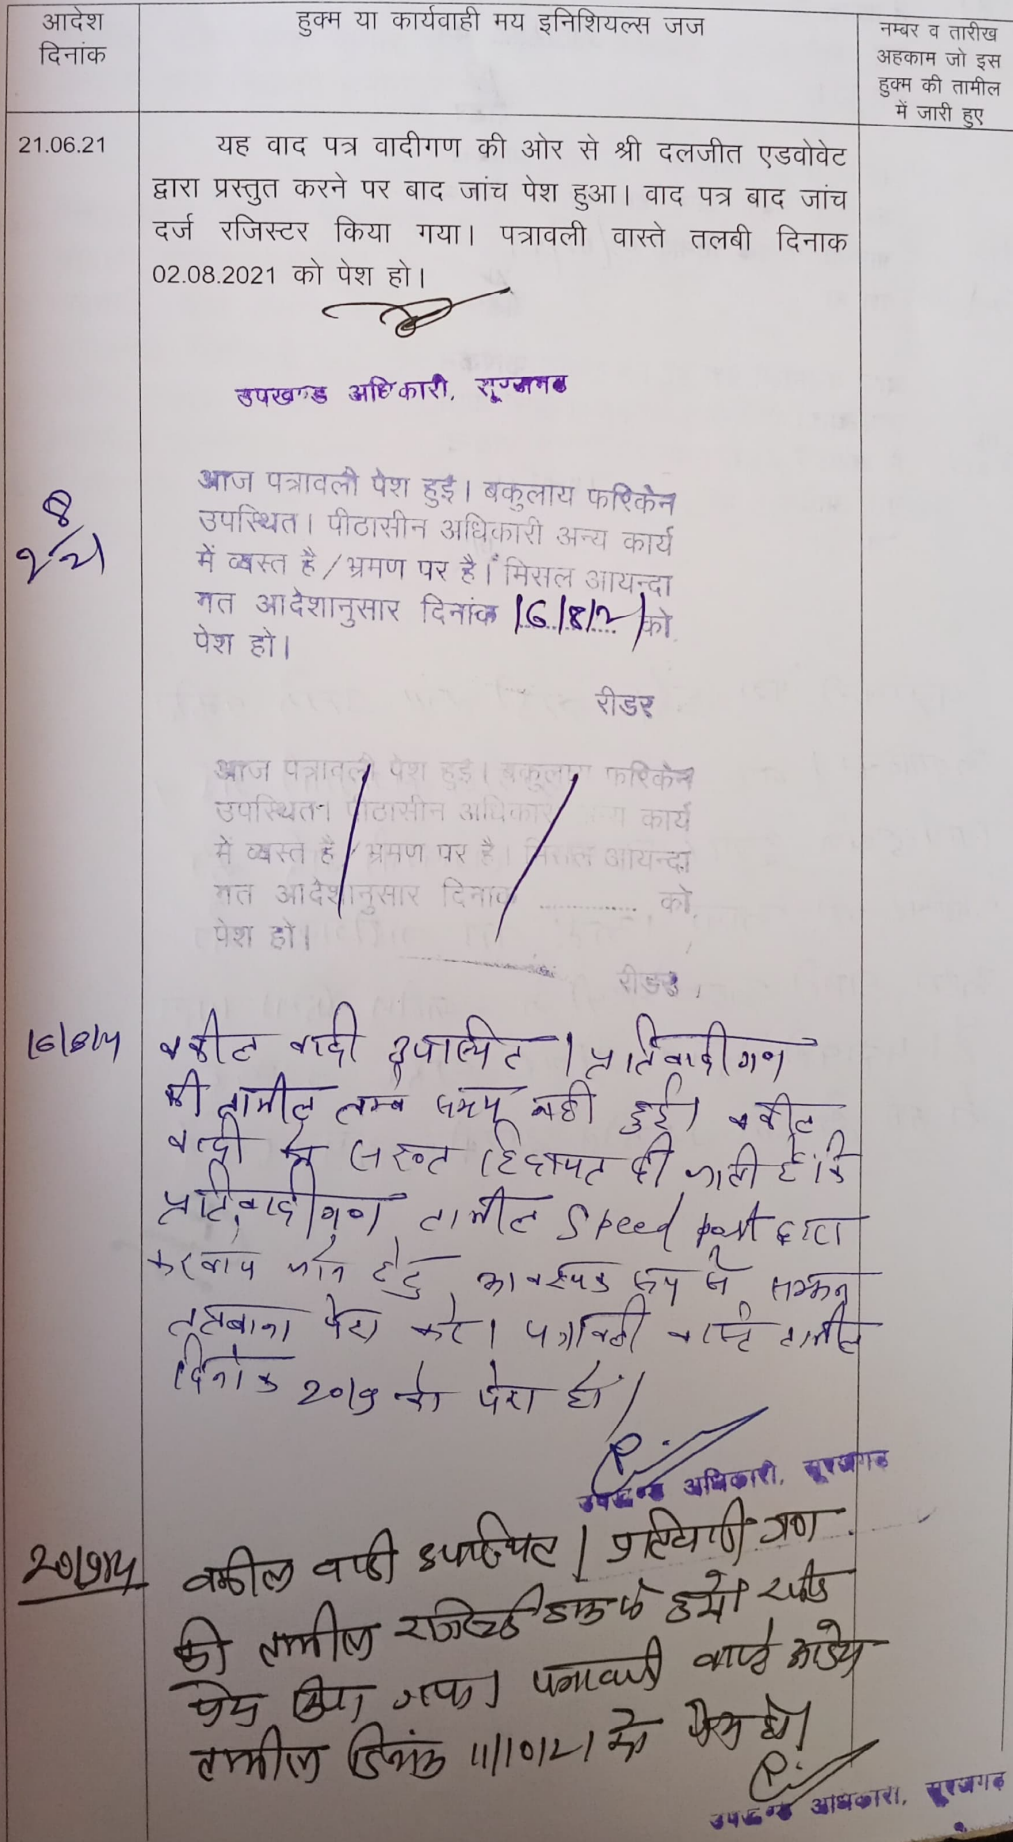 आदेश
दिनांक
हुक्म या कार्यवाही मय इनिशियल्स जज
नम्बर व तारीख
अहकाम जो इस
हुक्म की तामील
में जारी हुए
21.06.21
यह वाद पत्र वादीगण की ओर से श्री दलजीत एडवोवेट
द्वारा प्रस्तुत करने पर बाद जांच पेश हुआ। वाद पत्र बाद जांच
दर्ज रजिस्टर किया गया। पत्रावली वास्ते तलबी दिनाक
02.08.2021 को पेश हो।
उपखण्ड अधिकारी, सूरजगढ
2/8/21
आज पत्रावली पेश हुई। बकुलाय फरिकेन
उपस्थित। पीठासीन अधिकारी अन्य कार्य
में व्यस्त है / भ्रमण पर है। मिसल आयन्दा
गत आदेशानुसार दिनांक 16/8/21 को
पेश हो।
रीडर
आज पत्रावली पेश हुई। बकुलाय फरिकेन
उपस्थित। पीठासीन अधिकारी अन्य कार्य
में व्यस्त है / भ्रमण पर है। मिसल आयन्दा
गत आदेशानुसार दिनांक ............ को
पेश हो।
रीडर
16/8/21
वकील वादी उपस्थित। प्रतिवादीगण
की तामील समय नहीं हुई। वकील
वादी को सख्त हिदायत दी जाती है कि
प्रतिवादीगण तामील Speed post द्वारा
करवाये जाने हेतु आवश्यक रूप से सम्मन
तलबाना पेश करे। पत्रावली वास्ते तामील
दिनांक 20/9 को पेश हो।
उपखण्ड अधिकारी, सूरजगढ
20/9/21
वकील वादी उपस्थित। प्रतिवादी गण
की तामील रजिस्ट्री डाक रसीद
पेश किया गया। पत्रावली वास्ते
तामील दिनांक 11/10/21 को पेश हो।
उपखण्ड अधिकारी, सूरजगढ